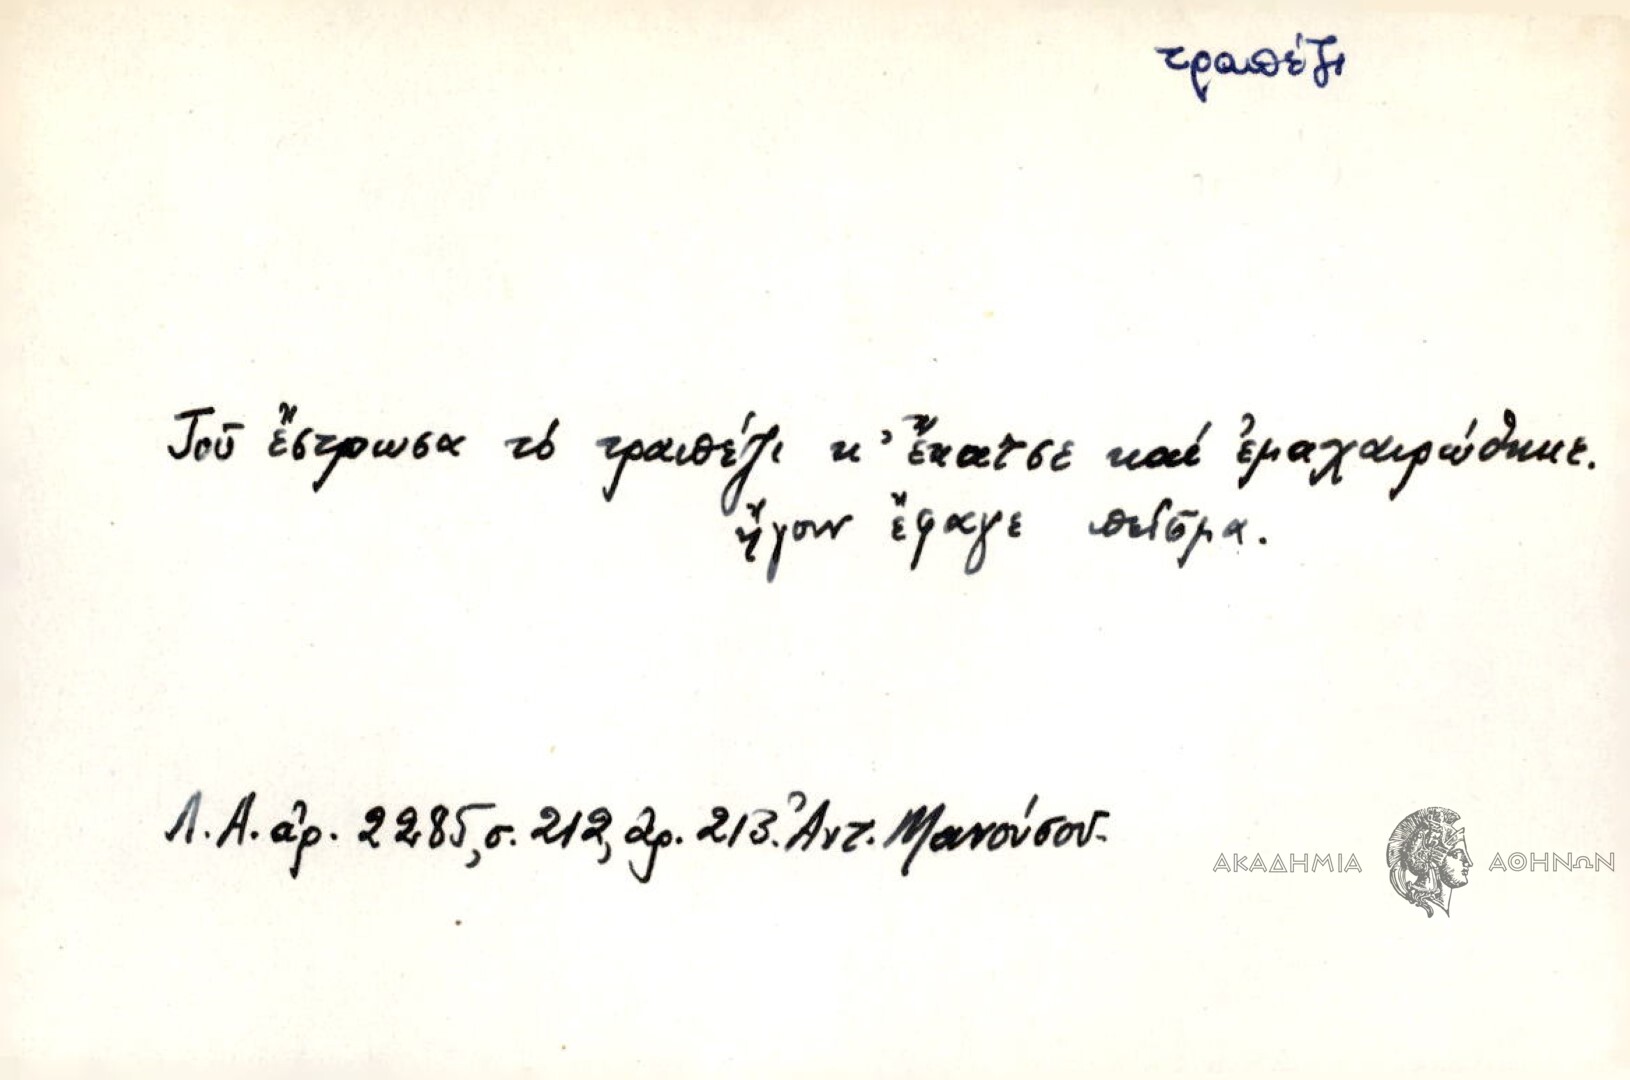 τραπέζι
Τοῦ ἔστρωσα τό τραπέζι κ' ἔκατσε καί ἐμαχαιρώθηκε.
ἤγουν ἔφαγε πεῖσμα.
Λ.Α. ἀρ. 2285, σ. 212, ἀρ. 213. Ἀντ. Μανούσου.
ΑΚΑΔΗΜΙΑ ΑΘΗΝΩΝ